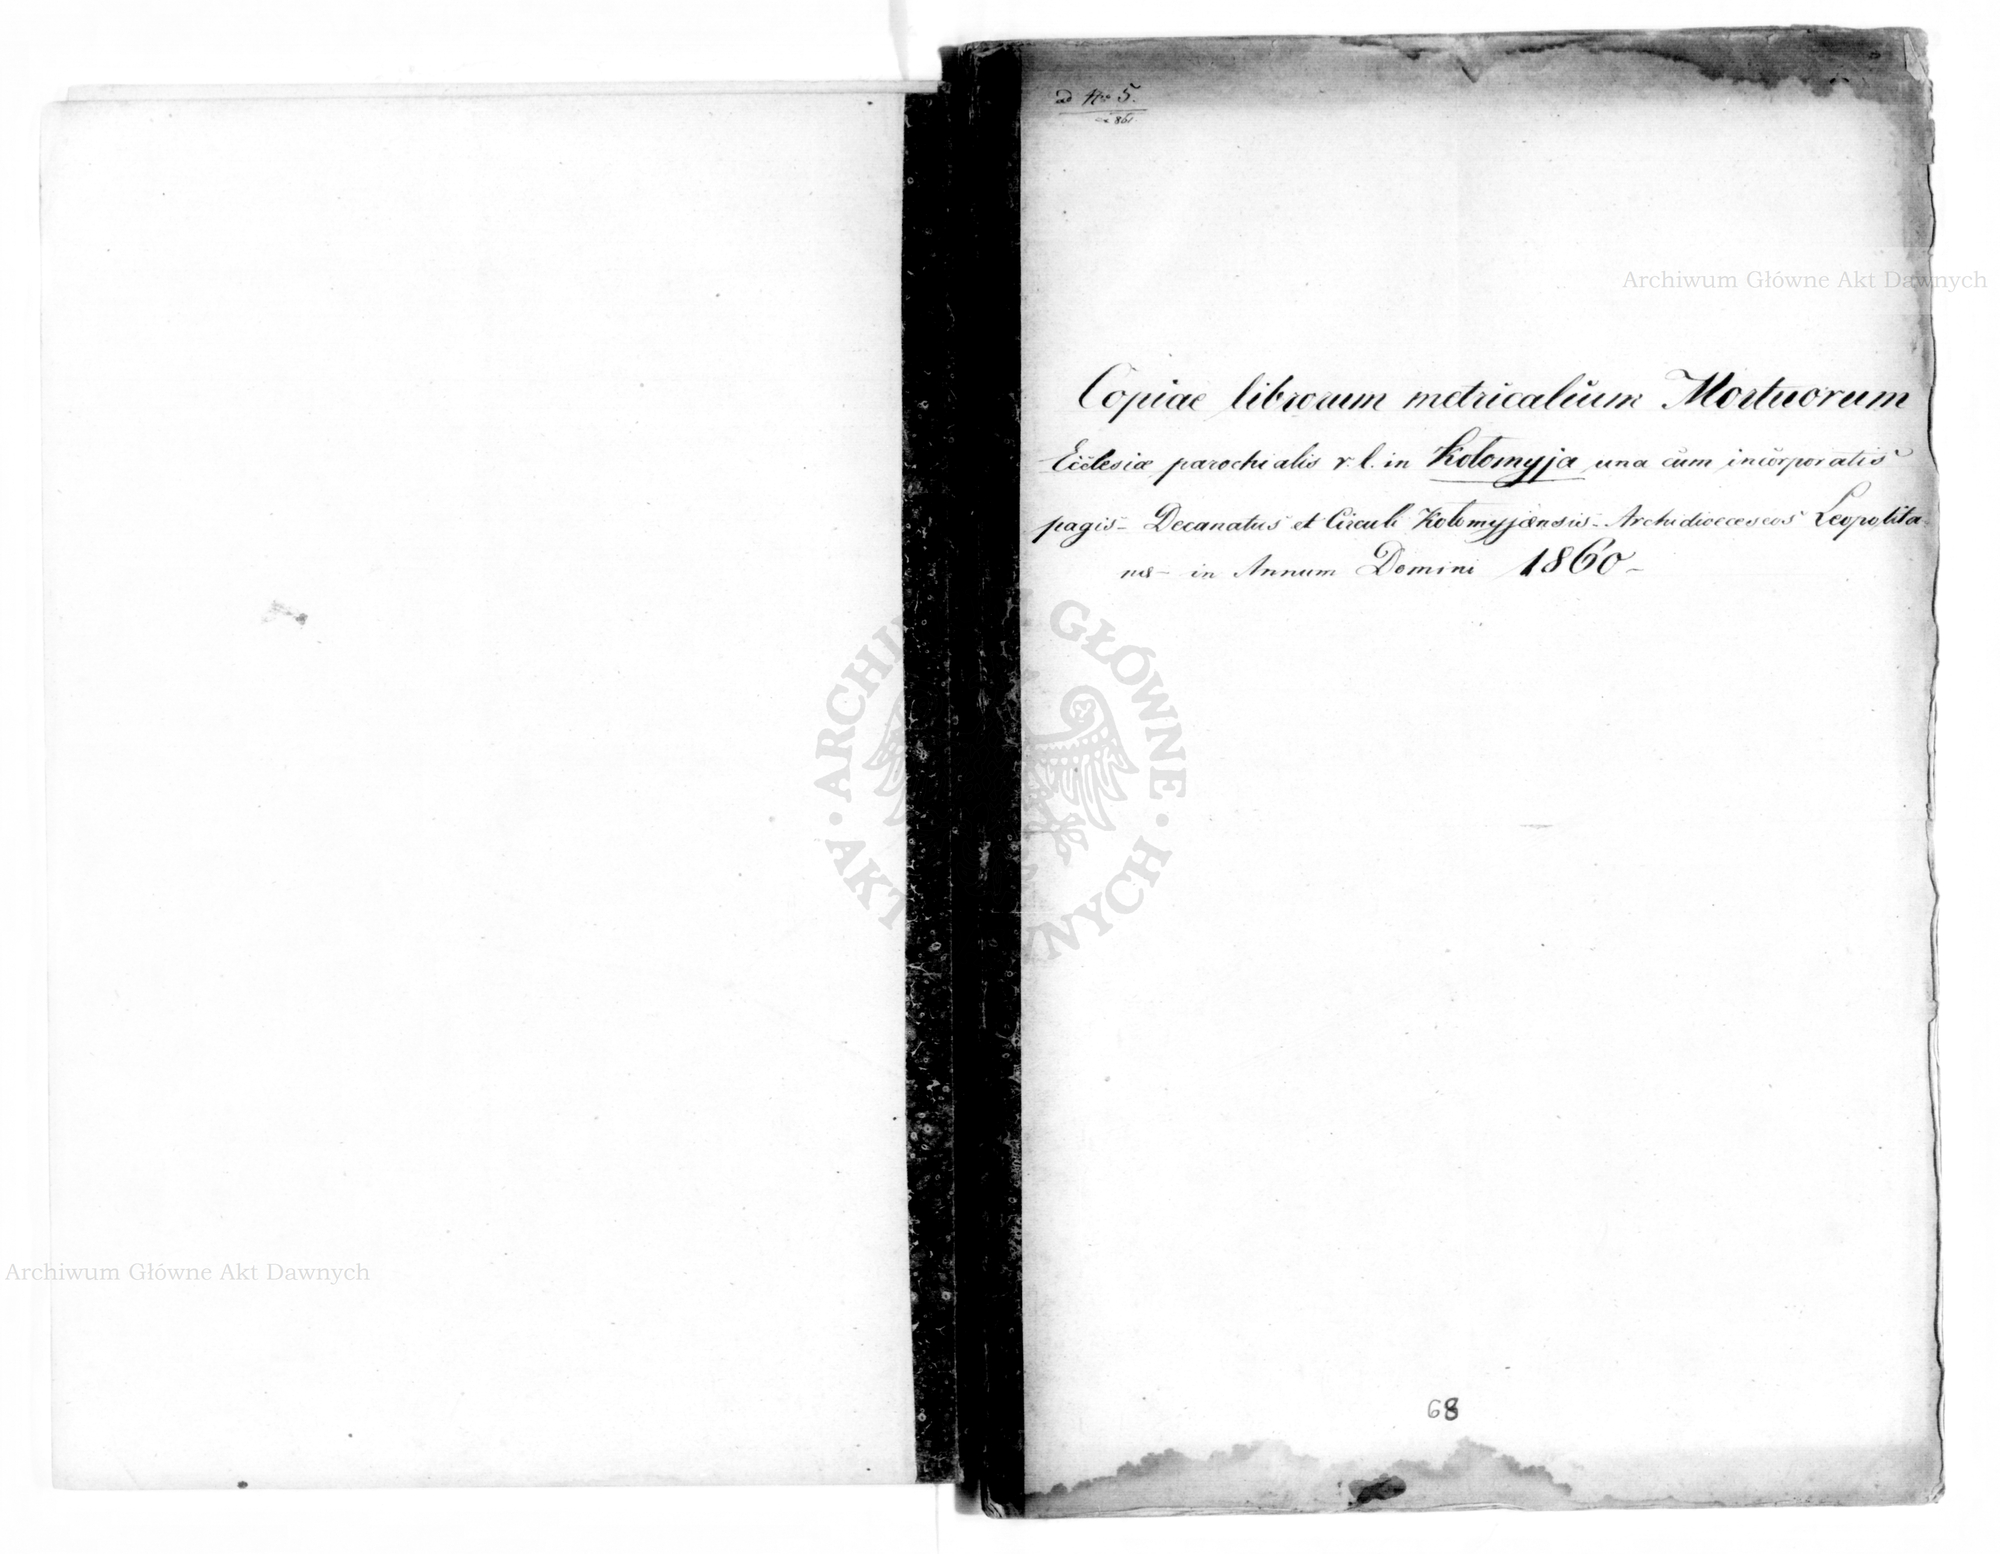 ad Nro 5.
861
Copiae librorum metricalium Mortuorum
Ecclesiæ parochialis r. l. in Kolomyja una cum incorporatis
pagis – Decanatus et Circuli Kolomyjænsis – Archidioeceseos Leopolita-
næ – in Annum Domini 1860 –
68
Archiwum Główne Akt Dawnych
Archiwum Główne Akt Dawnych
ARCHI GŁÓWNE
AKT NYCH